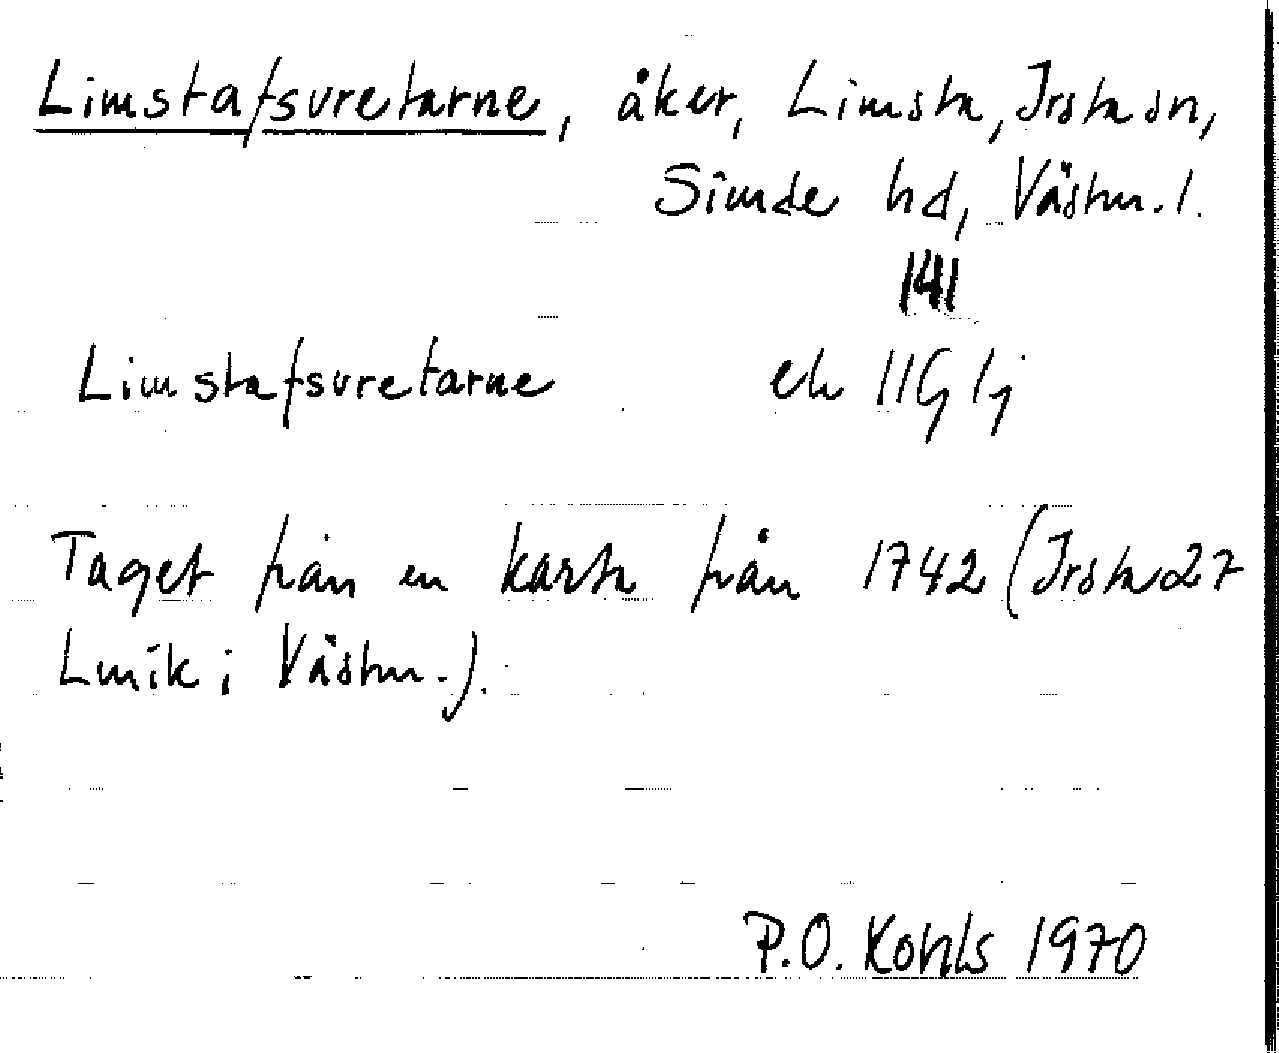 Limstafsuretarne, åker, Limsta, Irsta sn,
Siende hd, Västm. l.
141
Limstafsuretarne ek 11G 1j
Taget från en karta från 1742 (Irsta 27
Lmik i Västm.).
P.O. Kohls 1970